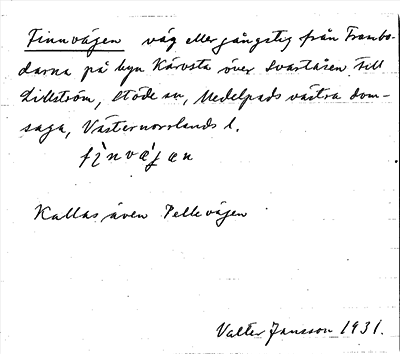 Finnvägen väg eller gångstig från Frambo-
darna på byn Kärvsta över Svartåsen till
Lillström, Stöde sn, Medelpads västra dom-
saga, Västernorrlands l.
Kallas även Pellevägen
Valter Jansson 1931.